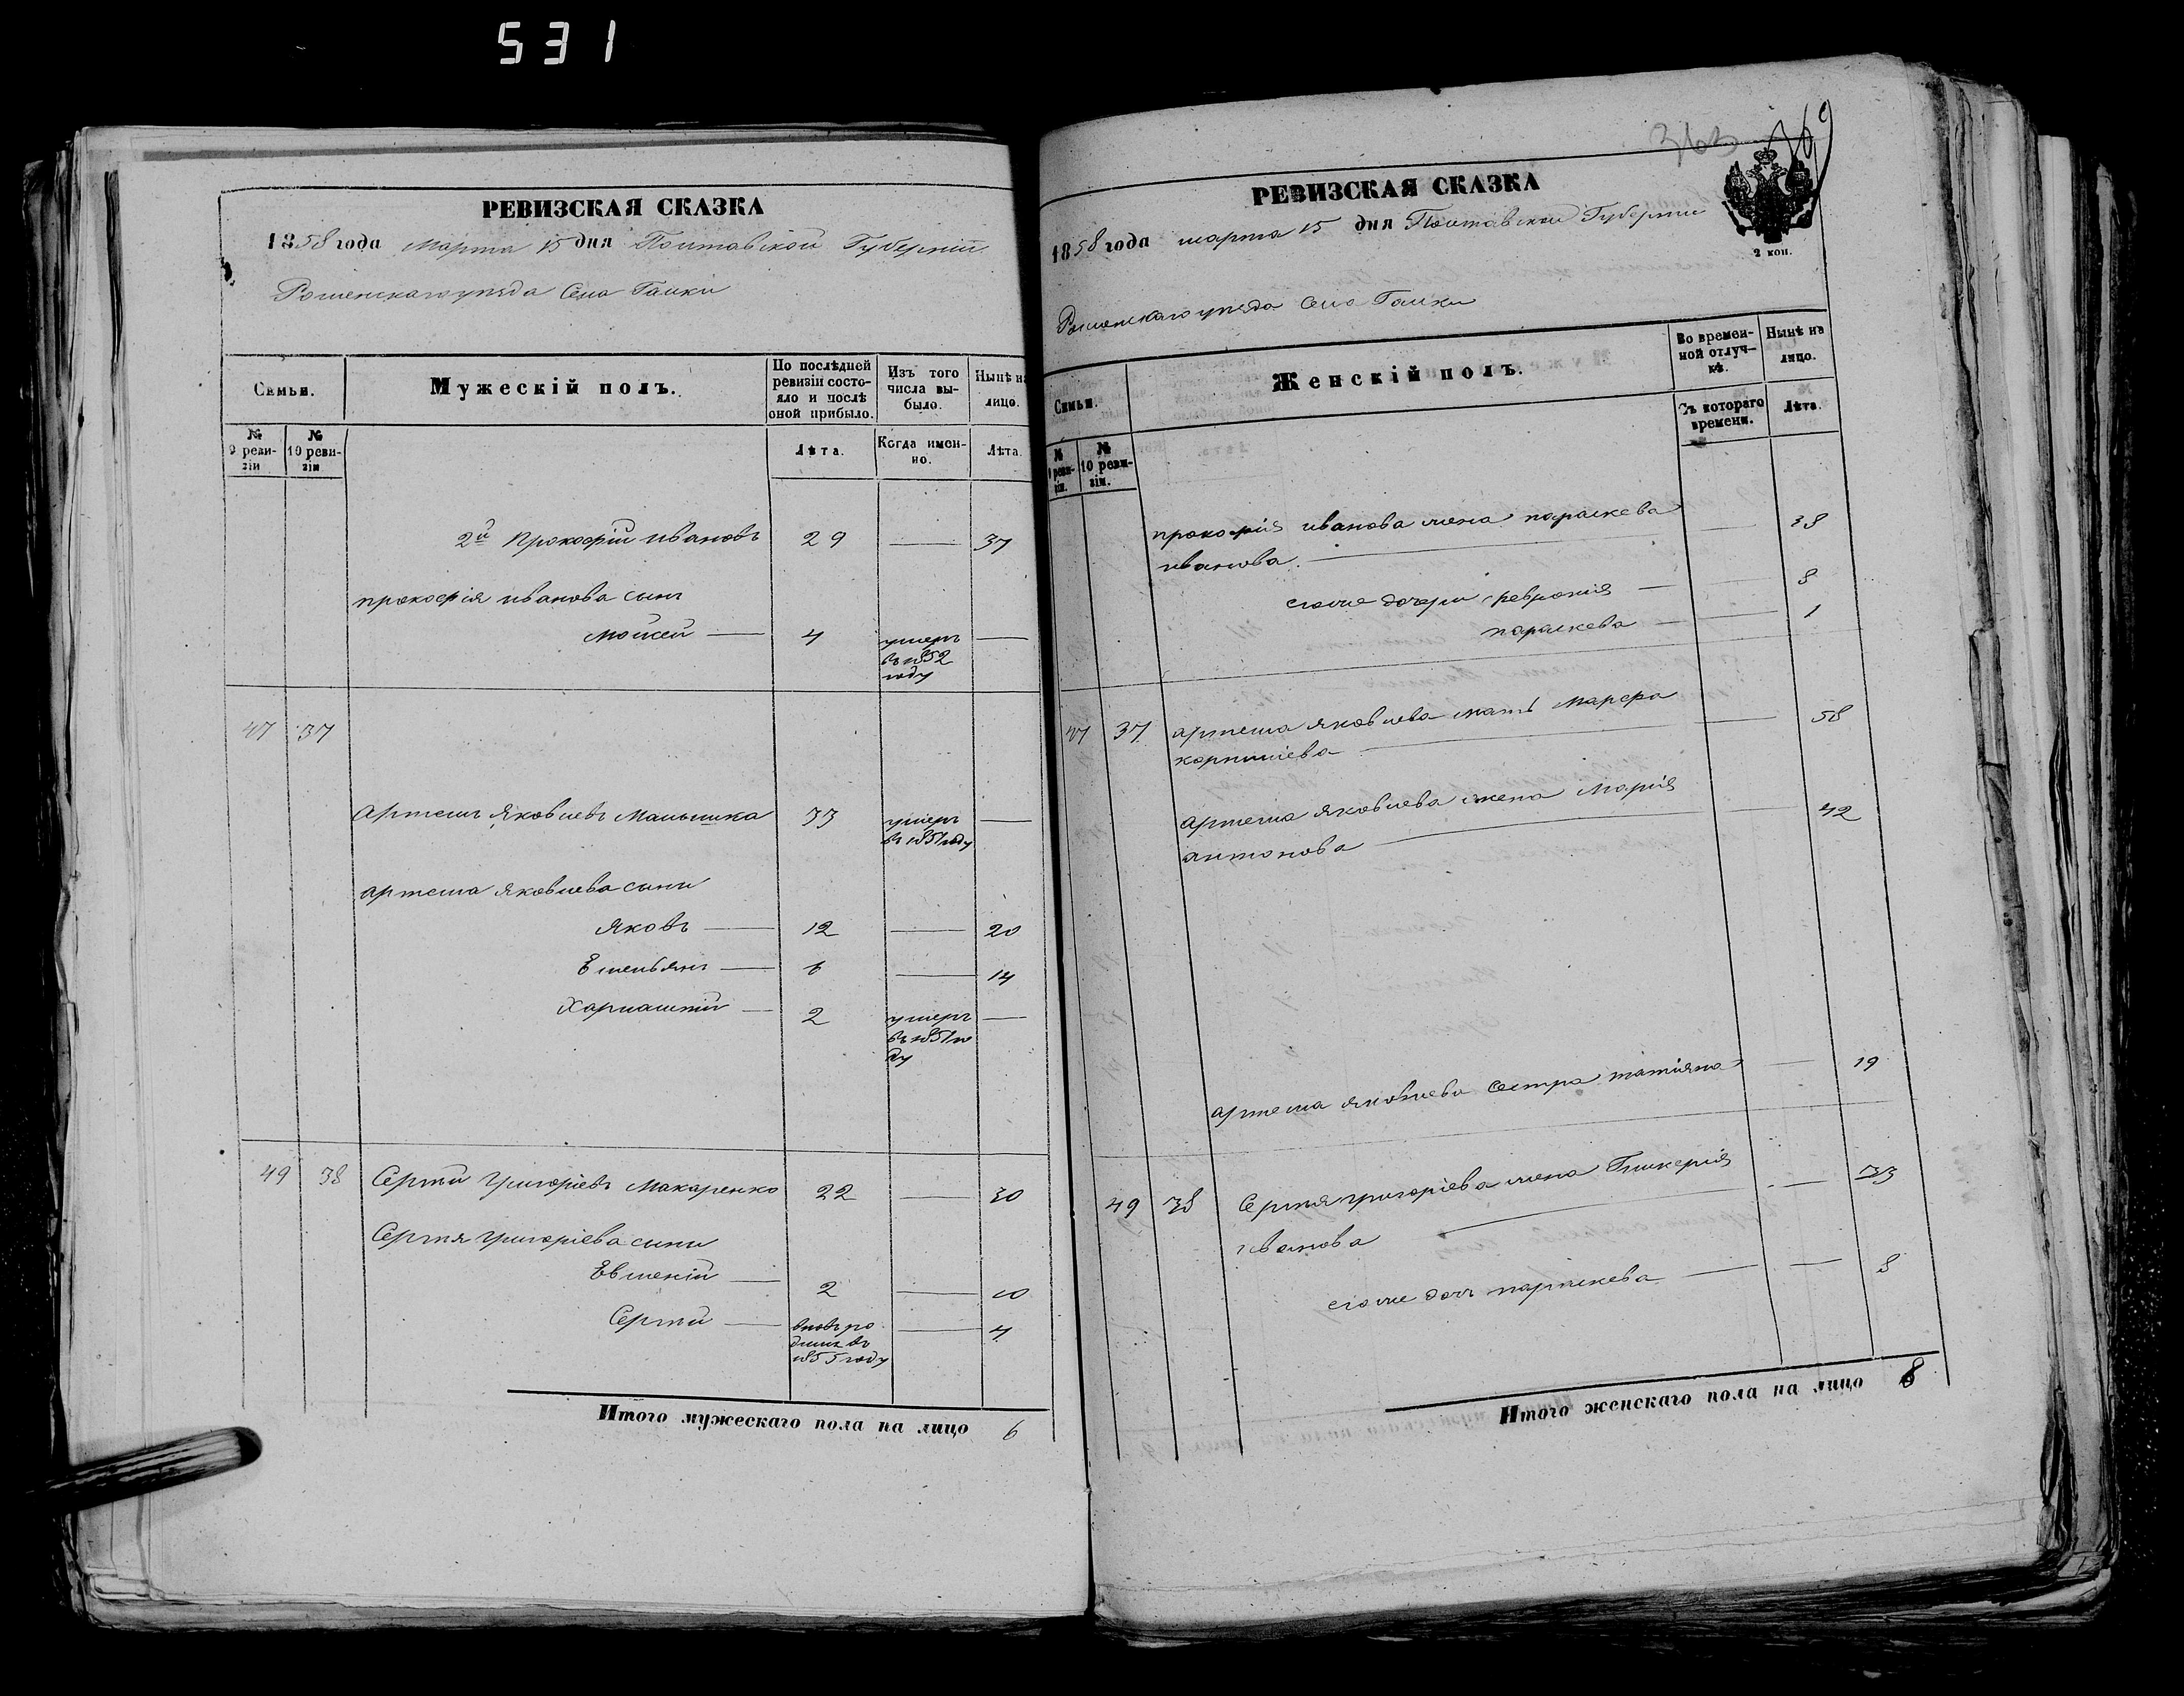 531
РЕВИЗСКАЯ СКАЗКА
1858 года Марта 15 дня Полтавской Губерніи
Роменскаго уезда Села Галки
Семьи.
Мужескій полъ.
По послѣдней ревизіи состояло и послѣ оной прибыло.
Изъ того числа выбыло.
Нынѣ на лицо.
№ 9 ревизіи
№ 10 ревизіи
Лѣта.
Когда именно.
Лѣта.
2й Прокофій Ивановъ 29 — 37
прокофія иванова сынъ
Мойсей — 4 умеръ въ 1852 году —
47 37
Артемъ Яковлевъ 33 умеръ въ 1851 году —
артема яковлева сыны
Яковъ — 12 — 20
Емельянъ — 6 — 14
Харлампій — 2 умеръ въ 1851 году —
49 38 Сергѣй Григоріевъ Макаренко 22 — 30
Сергѣя григоріева сыны
Евгеній — 2 — 10
Сергѣй — вновь родился въ 1855 году — 4
Итого мужескаго пола на лицо 6
363 369
РЕВИЗСКАЯ СКАЗКА
2 коп.
1858 года марта 15 дня Полтавской Губерніи
Роменскаго уезда Села Галки
Семьи.
Женскій полъ.
Во временной отлучкѣ.
Нынѣ на лицо.
№ 9 ревизіи.
№ 10 ревизіи.
Съ котораго времени.
Лѣта.
прокофія иванова жена параскева — 38
иванова —
его же дочери февронія — 8
параскева — 1
47 37 артема яковлева мать Марфа — 58
корниліева —
артема яковлева жена Марія — 42
антонова —
артема яковлева сестра татіяна — 19
49 38 Сергѣя григоріева жена Гликерія — 33
иванова —
его же дочь параскева — 8
Итого женскаго пола на лицо 8